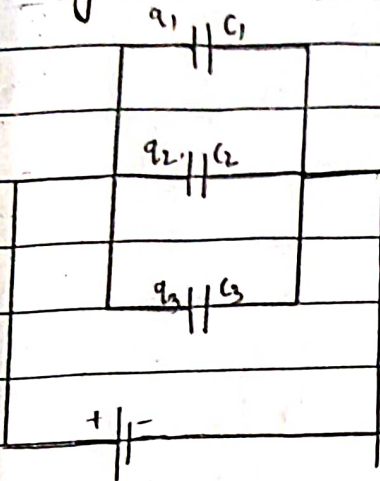 q₁ C₁
q₂ C₂
q₃ C₃
+ -